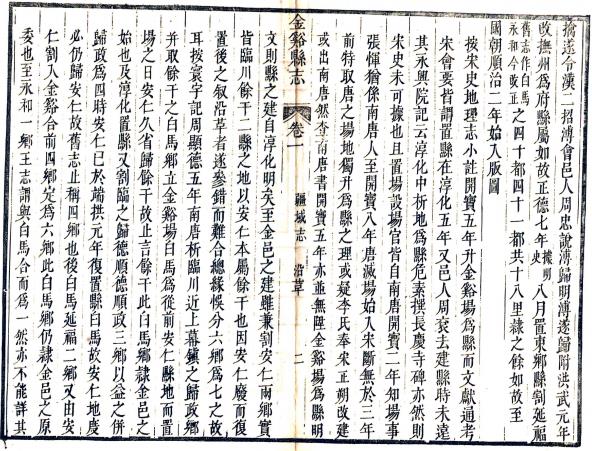 擒遂令漢二招溥會邑人周忠說溥歸明溥遂歸附洪武元年
改撫州爲府縣屬如故正德七年據明史八月置東鄉縣割延福
舊志作白馬永和今改正之四十四十一都共十八里隸之餘如故至
國朝順治二年始入版圖
按宋史地理志小註開寶五年升金谿塲爲縣而文獻通考
宋會要皆謂置縣在淳化五年又邑人周袞去建縣時未遠
其永興院記云淳化中析地爲縣危素撰長慶寺碑亦然則
宋史未可據也且置塲設塲官皆自南唐開寶二年知塲事
張惲猶係南唐人至開寶八年唐滅塲始入宋斷無於三年
前特取唐之塲地獨升爲縣之理或疑李氏奉宋正朔改建
或出南唐然查南唐書開寶五年亦並無陞金谿塲爲縣明
金谿縣志 卷一 疆域志 沿革 二
文則縣之建自淳化明矣至金邑之建雖兼割安仁兩鄉實
皆臨川餘干二縣之地以安仁本屬餘干也因安仁廢而復
置後之叙沿革者遂參錯而難合總緣悞分六鄉爲七之故
耳按寰宇記周顯德五年南唐析臨川近上幕鎮之歸政鄉
并取餘干之白馬鄉立金谿塲白馬爲從前安仁縣地而置
塲之日安仁久省歸餘干故止言餘干此白馬鄉隸金邑之
始也及淳化置縣又割臨之歸德順德順政三鄉以益之併
歸政爲四時安仁已於端拱元年復置縣白馬故安仁地
必仍歸安仁故舊志止稱四鄉也後白馬延福二鄉又由安
仁割入金谿合前四鄉定爲六鄉此白馬鄉仍隸金邑之原
委也至永和一鄉王志謂與白馬合而爲一然亦不能詳其